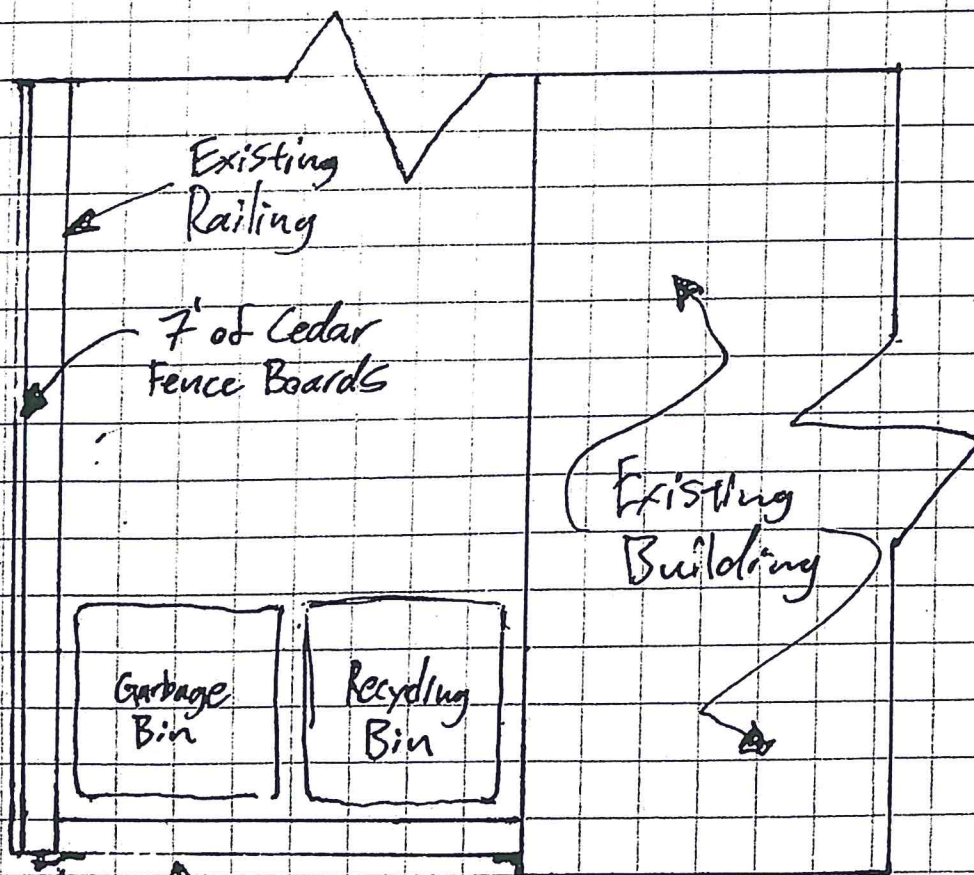 Existing
Railing
7' of Cedar
Fence Boards
Existing
Building
Garbage
Bin
Recycling
Bin